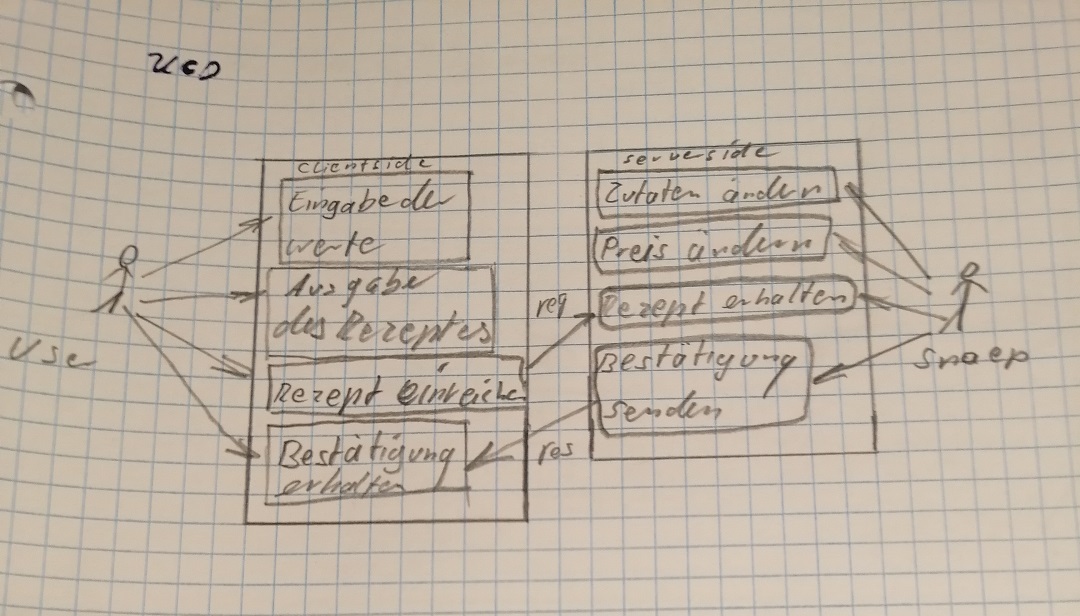 UCD
clientside
Eingabe der
werte
Ausgabe
des Rezeptes
Rezept einreiche
Bestätigung
erhalten
User
req
res
serverside
Zutaten ändern
Preis ändern
Rezept erhalten
Bestätigung
senden